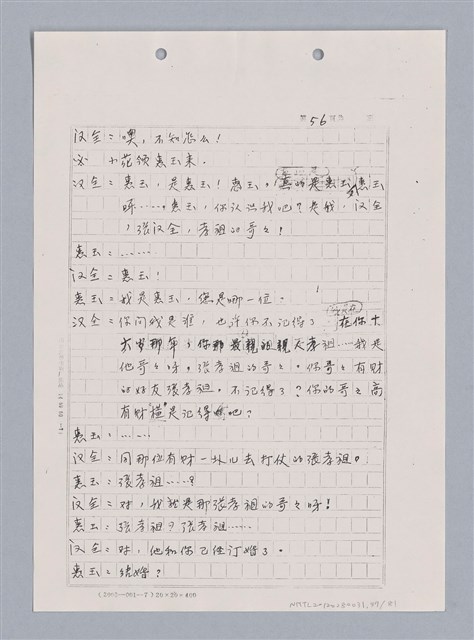 第 56 頁
汉全：噢，不知怎么！
小范领惠玉来。
汉全：惠玉，是惠玉！惠玉，真的是惠玉，惠玉
呀……惠玉，你认识我吧？是我，汉全
，张汉全，孝祖的哥々！
惠玉：……
汉全：惠玉！
惠玉：我是惠玉，您是哪一位。
汉全：你问我是谁，也许你不记得了 在你十
六岁那年，你那 孝祖……我是
他哥々呀，张孝祖的哥々。你哥々有财
的好友张孝祖，不记得了？你的哥々高
有财 是记得 吧？
惠玉：……
汉全：同那位有财一块儿去打仗的张孝祖。
惠玉：张孝祖……？
汉全：对，我就是那张孝祖的哥々呀！
惠玉：张孝祖？张孝祖……
汉全：对，他和你已经订婚了。
惠玉：结婚？
20×20=400